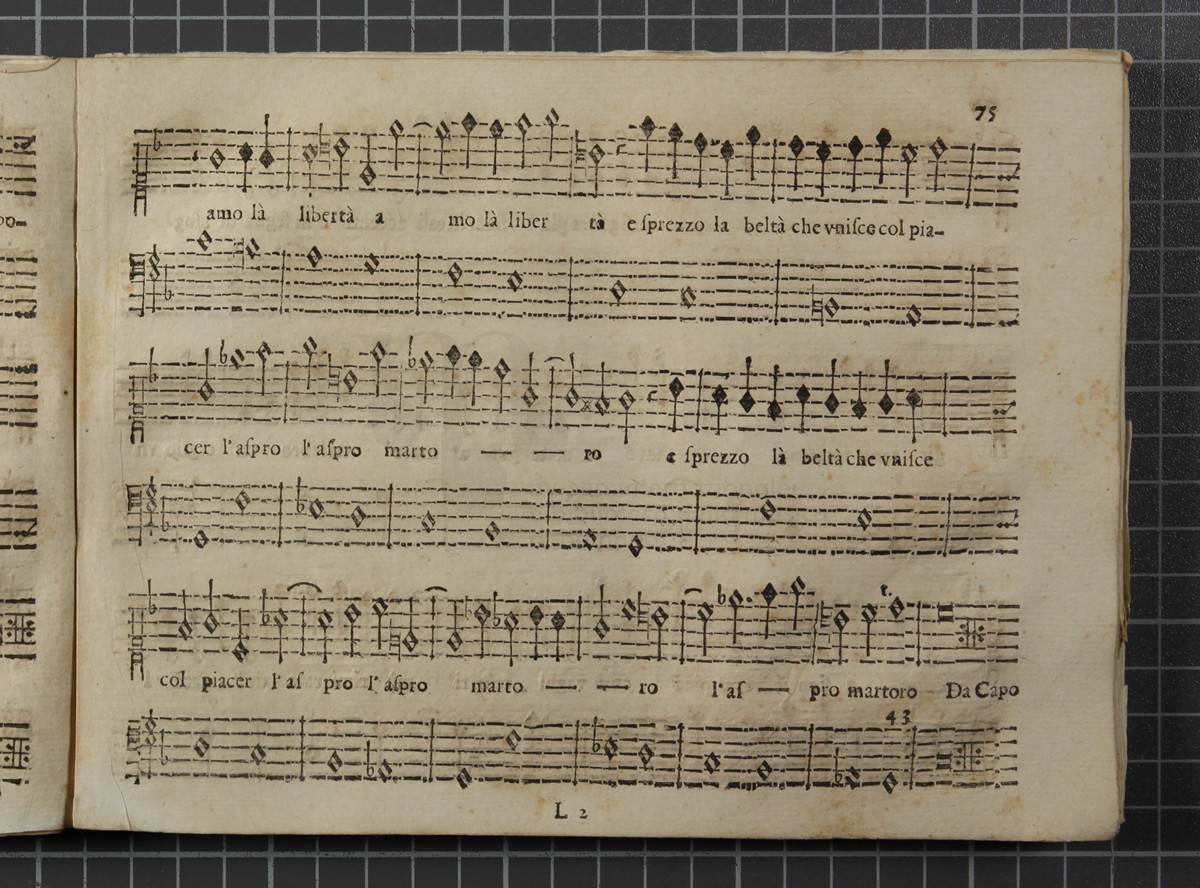 75
amo là libertà a mo là liber tà e ſprezzo la beltà che vniſce col pia-
cer l'aſpro l'aſpro marto — — ro e ſprezzo là beltà che vniſce
t.
col piacer l'aſ pro l'aſpro marto — — ro l'aſ — pro martoro Da Capo
4 3
L 2